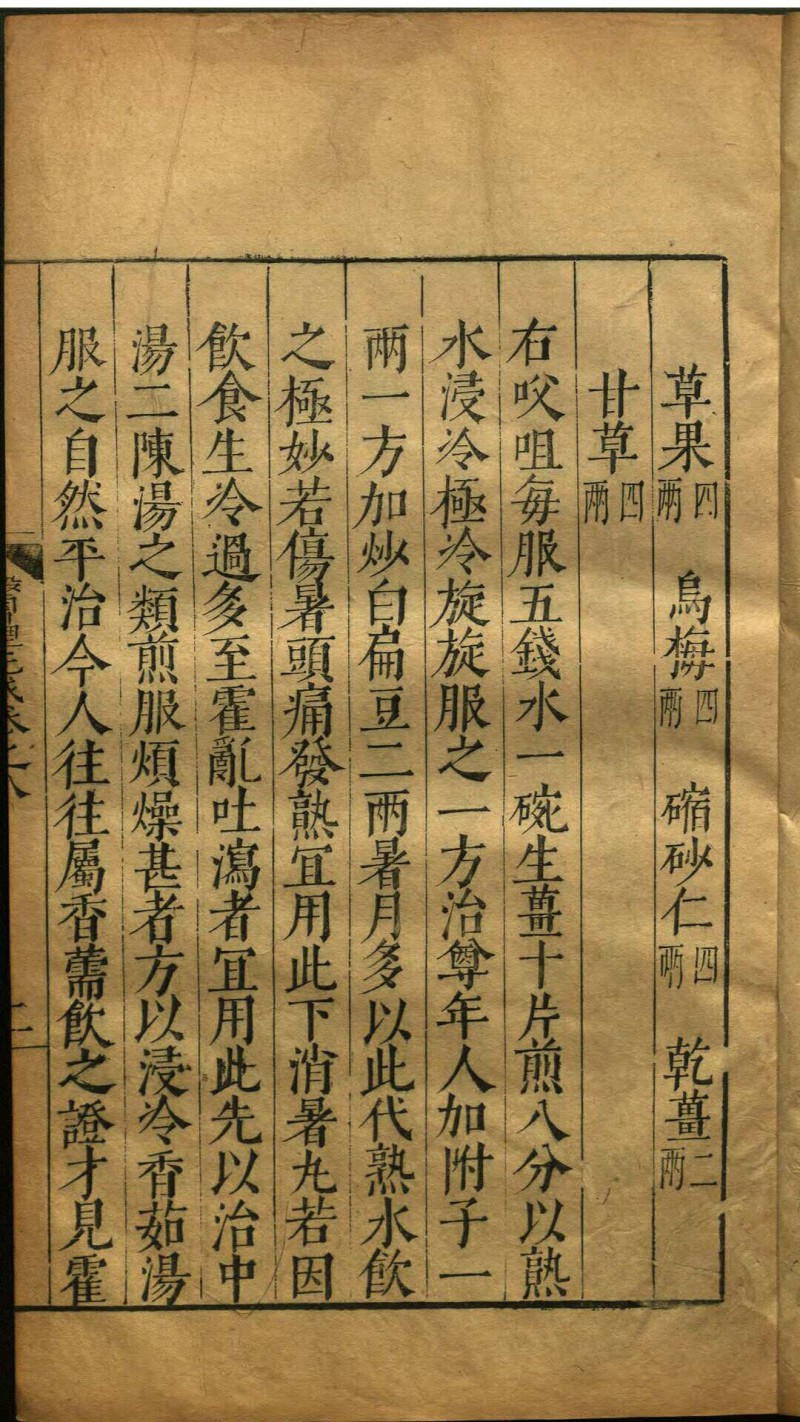 草果四兩 烏梅四兩 縮砂仁四兩 乾薑二兩
甘草四兩
右㕮咀每服五錢水一碗生薑十片煎八分以熟
水浸冷極冷旋旋服之一方治尊年人加附子一
兩一方加炒白扁豆二兩暑月多以此代熟水飲
之極妙若傷暑頭痛發熱宜用此下消暑丸若因
飲食生冷過多至霍亂吐瀉者宜用此先以治中
湯二陳湯之類煎服煩燥甚者方以浸冷香茹湯
服之自然平治今人往往屬香薷飲之證才見霍